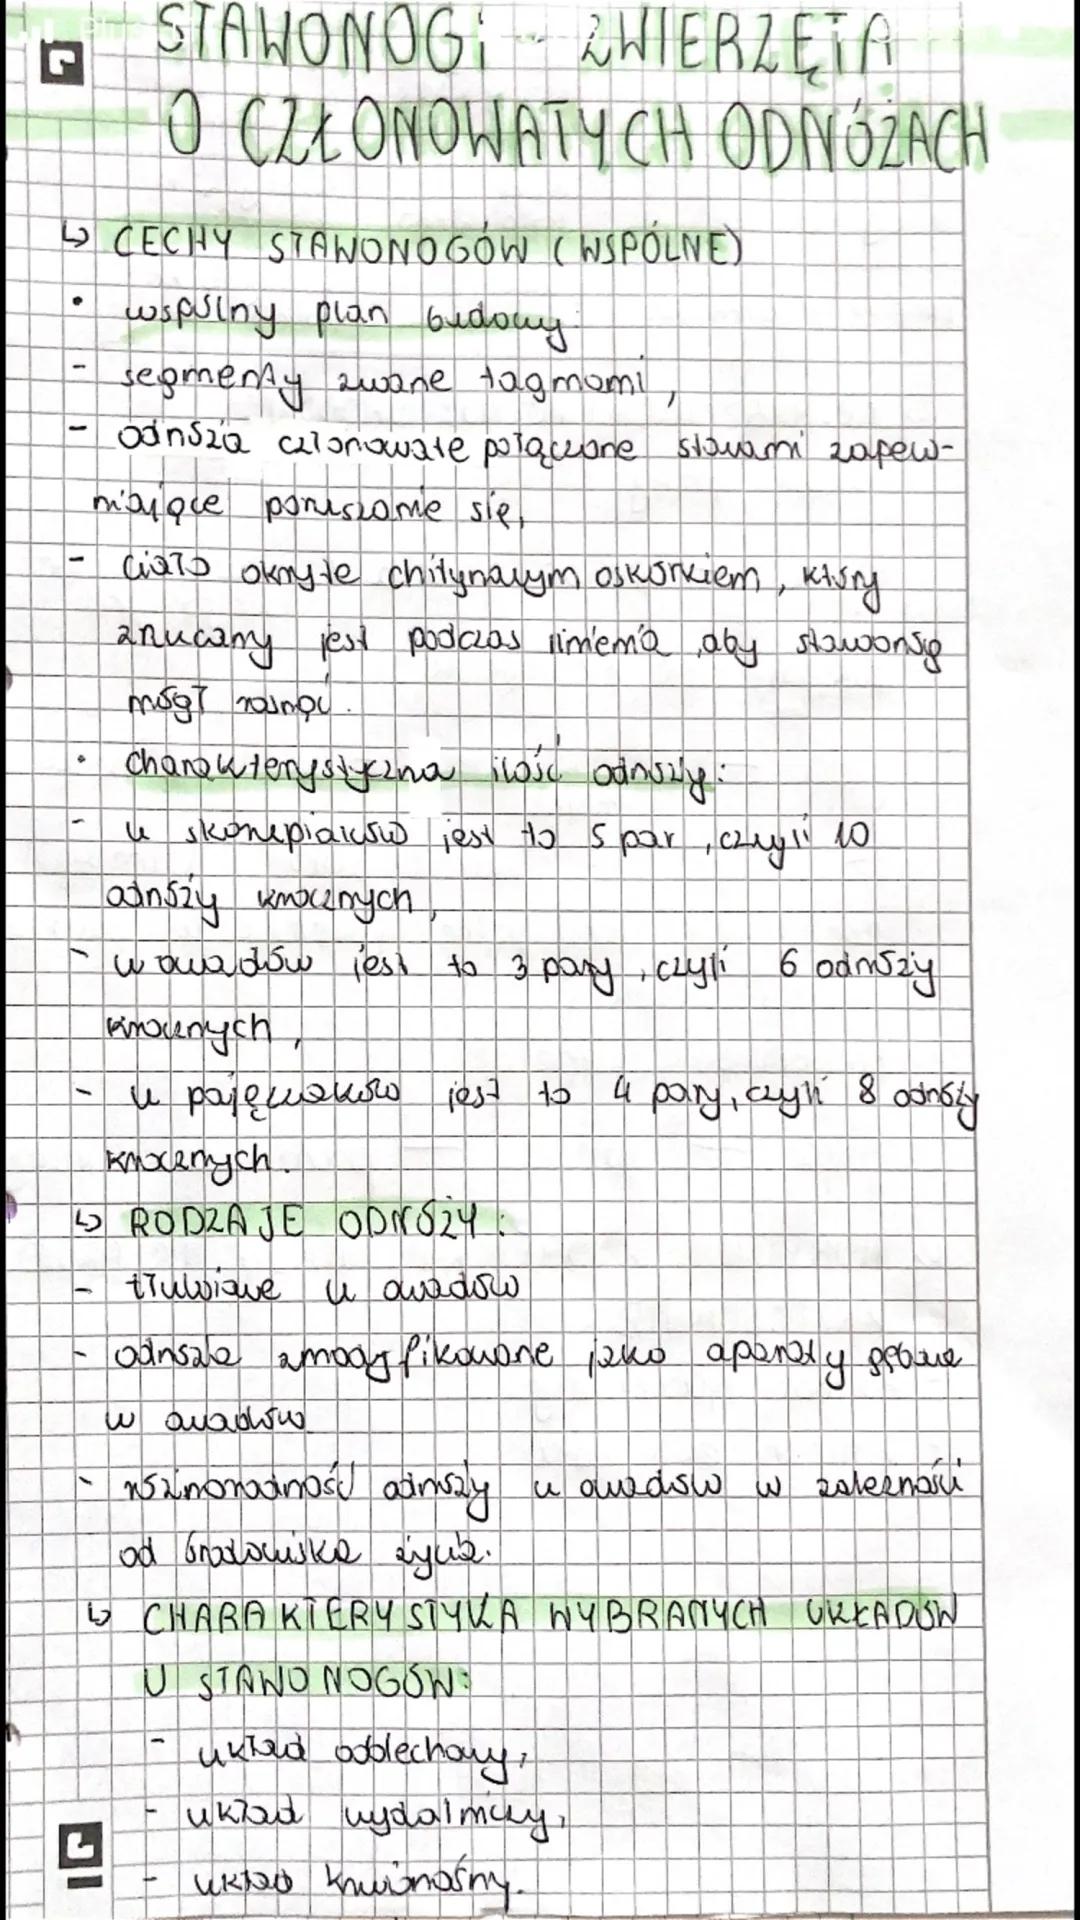 STAWONOGI - ZWIERZĘTA
O CZŁONOWATYCH ODNÓŻACH
↳ CECHY STAWONOGÓW (WSPÓLNE)
• wspólny plan budowy:
- segmenty zwane tagmami,
- odnóża członowate połączone stawami zapew-
niające poruszanie się,
- ciało okryte chitynowym oskórkiem, który
zrzucany jest podczas linienia, aby stawonóg
mógł rosnąć.
• charakterystyczna ilość odnóży:
- u skorupiaków jest to 5 par, czyli 10
odnóży krocznych,
- u owadów jest to 3 pary, czyli 6 odnóży
krocznych,
- u pajęczaków jest to 4 pary, czyli 8 odnóży
krocznych.
↳ RODZAJE ODNÓŻY:
- tłuwiowe u owadów
- odnóża zmodyfikowane jako aparaty gębowe
w owadów
- różnorodność odnóży u owadów w zależności
od środowiska życia.
↳ CHARAKTERYSTYKA WYBRANYCH UKŁADÓW
U STAWONOGÓW:
- układ oddechowy,
- układ wydalniczy,
- układ krwionośny.